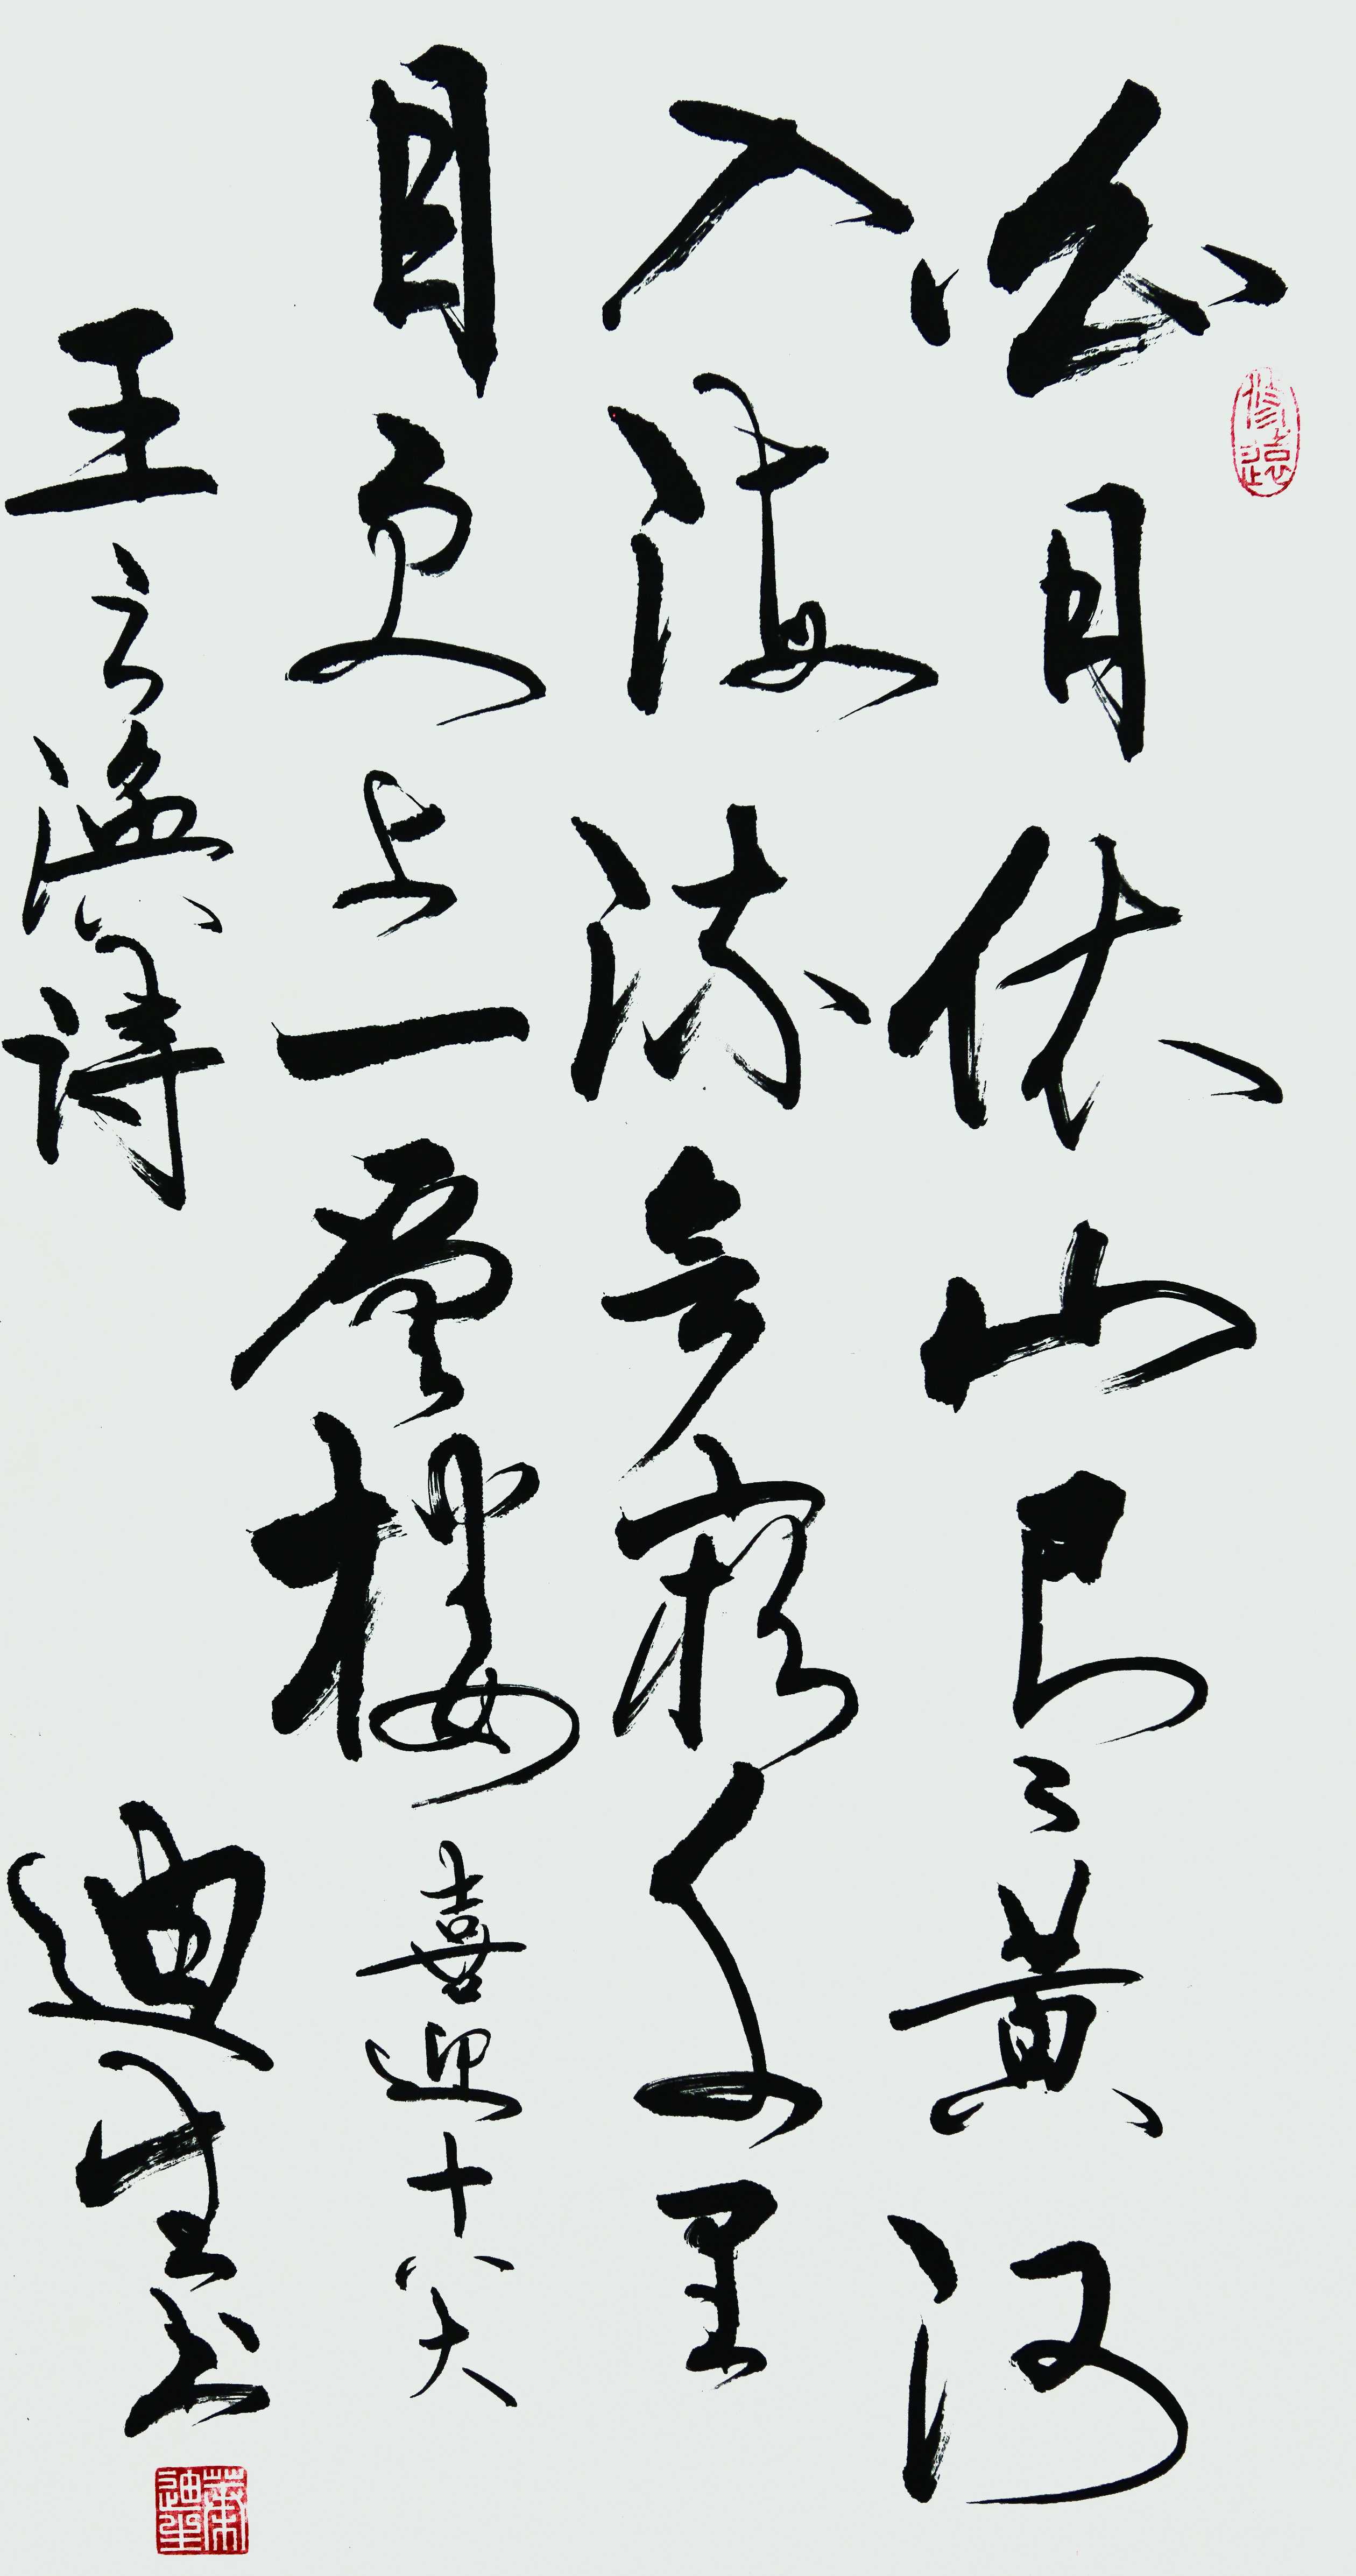 白日依山尽黄河
入海流欲穷千里
目更上一層樓 喜迎十八大
王之渙诗 迪生书
修远